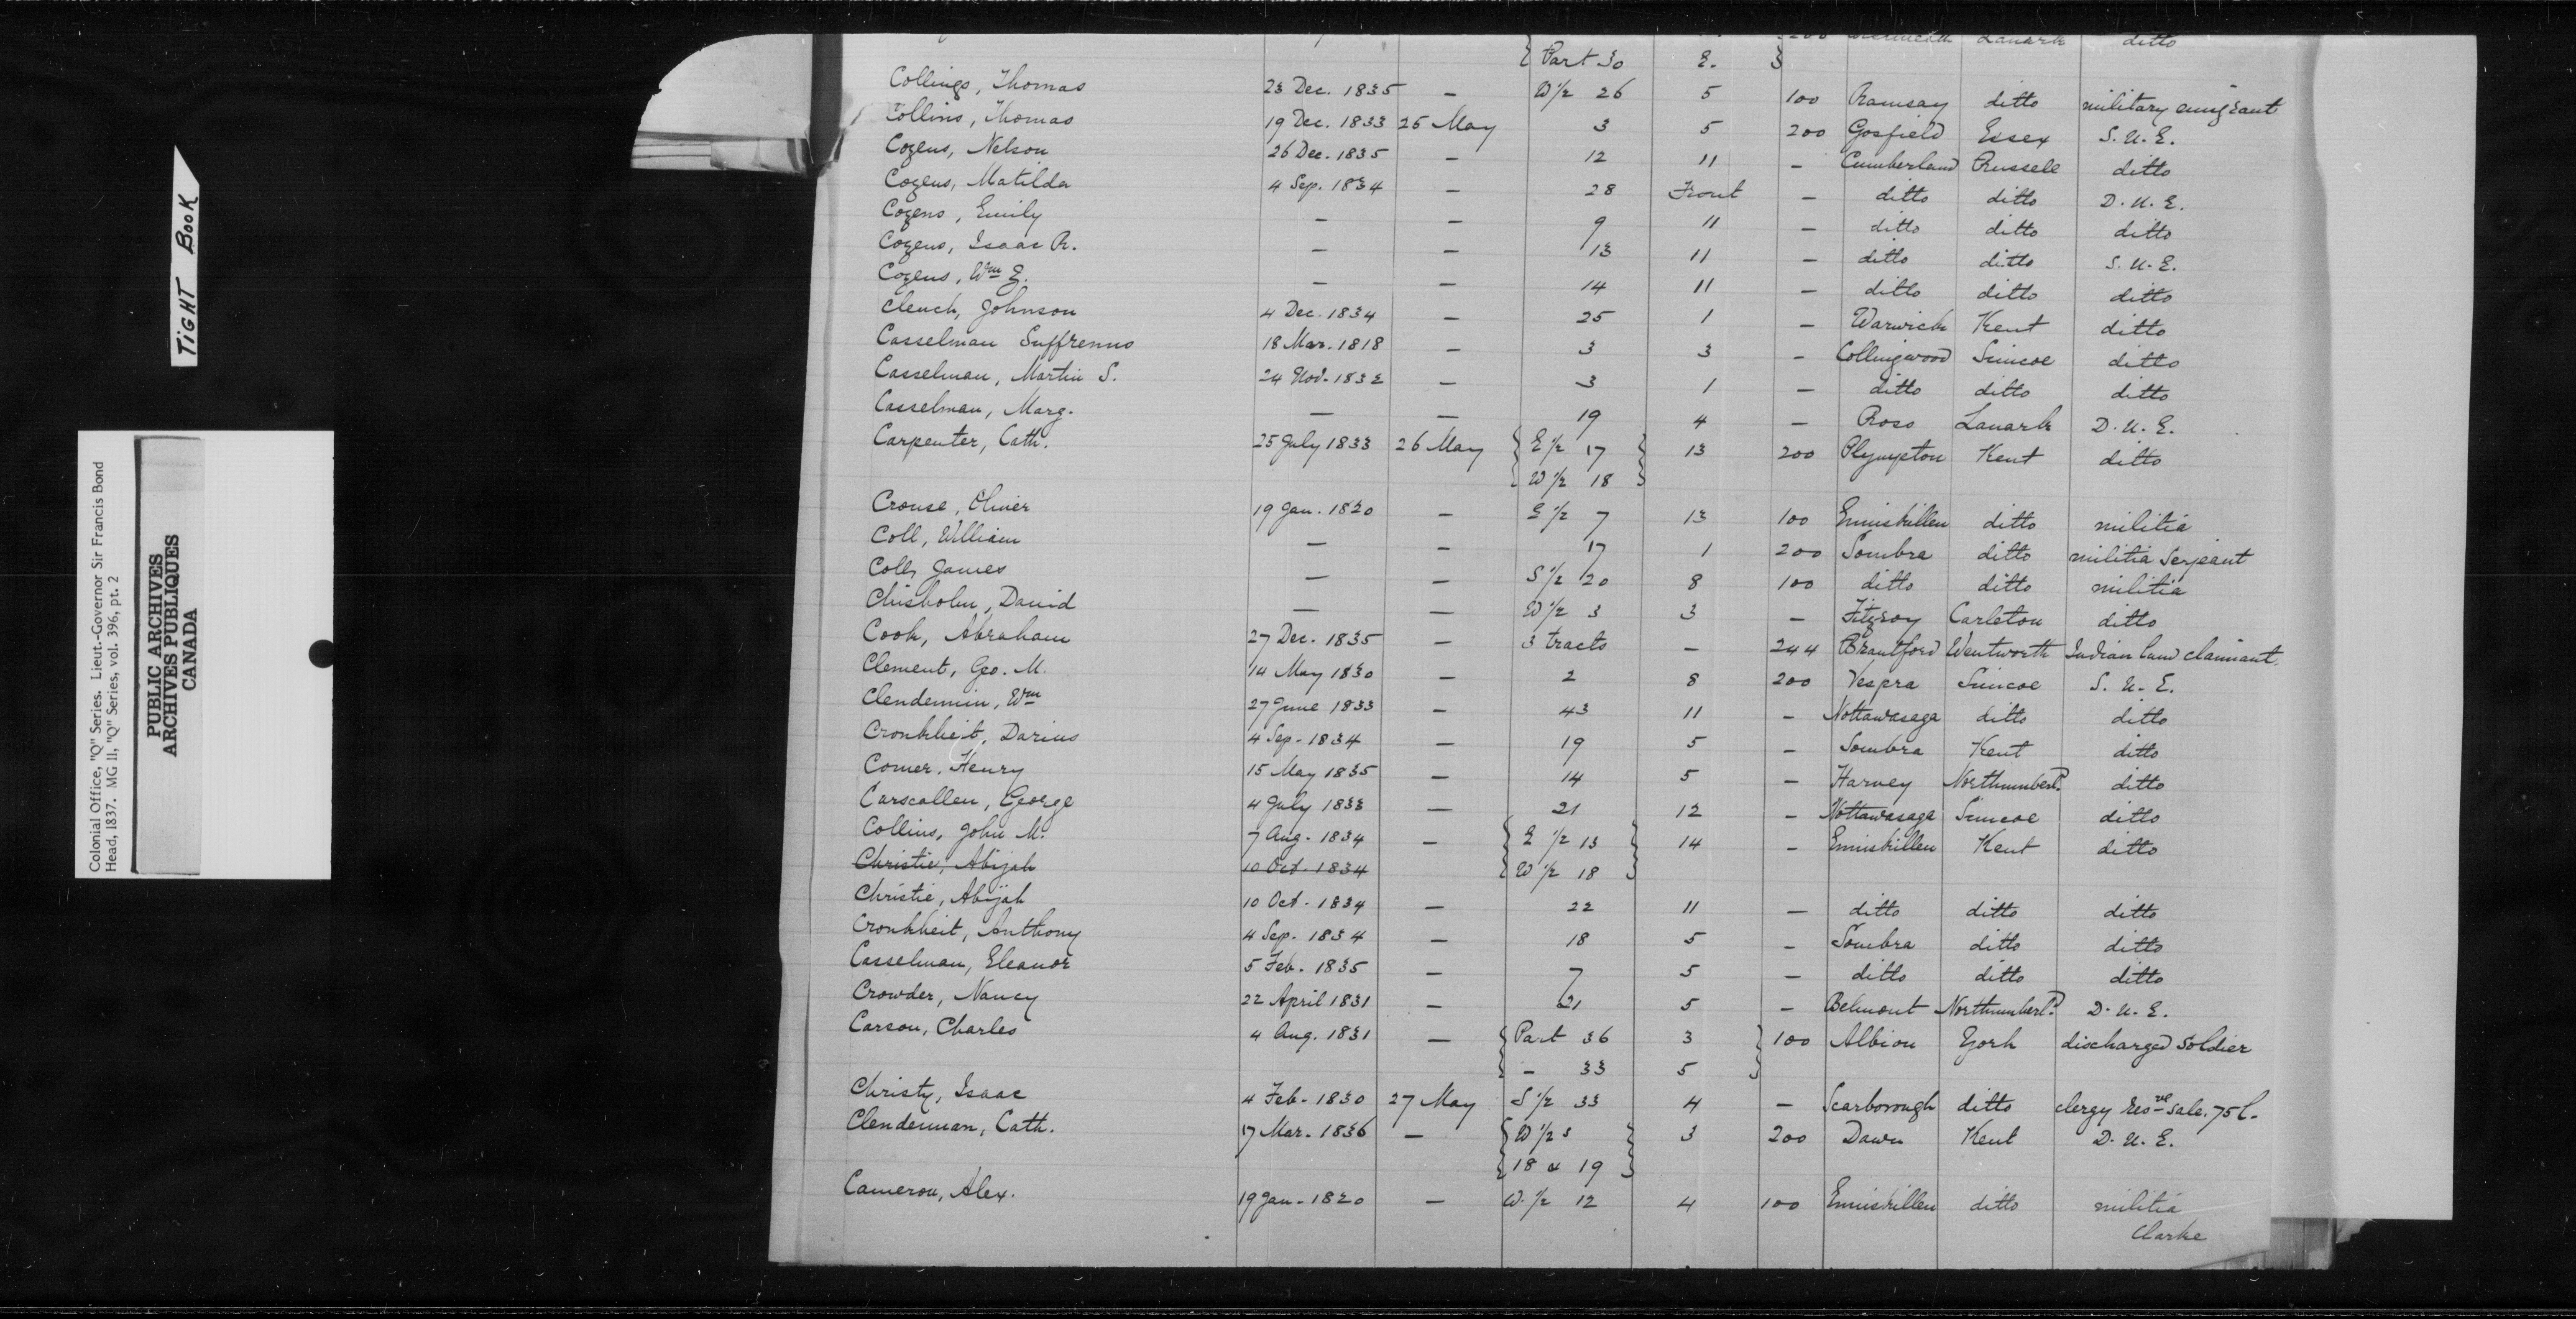 200 Lanark ditto
{ Part 30 E. }
Collings, Thomas 23 Dec. 1835 — W 1/2 26 5 100 Ramsay ditto military emigrant
Collins, Thomas 19 Dec. 1833 25 May 3 5 200 Gosfield Essex S.U.E.
Cozens, Nelson 26 Dec. 1835 — 12 11 — Cumberland Russell ditto
Cozens, Matilda 4 Sep. 1834 — 28 Front — ditto ditto D.U.E.
Cozens, Emily — — 9 11 — ditto ditto ditto
Cozens, Isaac R. — — 13 11 — ditto ditto S.U.E.
Cozens, Wm E. — — 14 11 — ditto ditto ditto
Clench, Johnson 4 Dec. 1834 — 25 1 — Warwick Kent ditto
Casselman Suffrenus 18 Mar. 1818 — 3 3 — Collingwood Simcoe ditto
Casselman, Martin S. 24 Nov. 1832 — 3 1 — ditto ditto ditto
Casselman, Marg. — — 19 4 — Ross Lanark D.U.E.
Carpenter, Cath. 25 July 1833 26 May { E 1/2 17 } 13 200 Plympton Kent ditto
{ W 1/2 18 }
Crouse, Oliver 19 Jan. 1820 — E 1/2 7 13 100 Enniskillen ditto militia
Coll, William — — 17 1 200 Sombra ditto militia Serjeant
Coll, James — — S 1/2 20 8 100 ditto ditto militia
Chisholm, David — — W 1/2 3 3 — Fitzroy Carleton ditto
Cook, Abraham 27 Dec. 1835 — 3 tracts — 244 Brantford Wentworth Indian land claimant.
Clement, Geo. M. 14 May 1830 — 2 8 200 Vespra Simcoe S.U.E.
Clendennin, Wm 27 June 1833 — 43 11 — Nottawasaga ditto ditto
Cronkheit, Darius 4 Sep. 1834 — 19 5 — Sombra Kent ditto
Comer, Henry 15 May 1835 — 14 5 — Harvey Northumberld. ditto
Carscallen, George 4 July 1833 — 21 12 — Nottawasaga Simcoe ditto
Collins, John M. 7 Aug. 1834 — { E 1/2 13 } 14 — Enniskillen Kent ditto
Christie, Abijah 10 Oct. 1834 { W 1/2 18 }
Christie, Abijah 10 Oct. 1834 — 22 11 — ditto ditto ditto
Cronkheit, Anthony 4 Sep. 1834 — 18 5 — Sombra ditto ditto
Casselman, Eleanor 5 Feb. 1835 — 7 5 — ditto ditto ditto
Crowder, Nancy 22 April 1831 — 21 5 — Belmont Northumberld. D.U.E.
Carson, Charles 4 Aug. 1831 — { Part 36 3 } 100 Albion York discharged soldier
{ — 33 5 }
Christy, Isaac 4 Feb. 1830 27 May S 1/2 33 4 — Scarborough ditto clergy resve sale. 75l.
Clenderman, Cath. 17 Mar. 1836 — { W 1/2 s } 3 200 Dawn Kent D.U.E.
{ 18 & 19 }
Cameron, Alex. 19 Jan. 1820 — W. 1/2 12 4 100 Enniskillen ditto militia
Clarke
TIGHT BOOK
Colonial Office, "Q" Series. Lieut.-Governor Sir Francis Bond
Head, 1837. MG 11, "Q" Series, vol. 396, pt. 2
PUBLIC ARCHIVES
ARCHIVES PUBLIQUES
CANADA